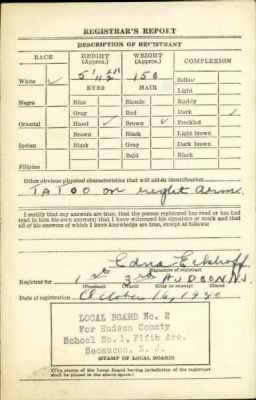 REGISTRAR'S REPORT
DESCRIPTION OF REGISTRANT
RACE HEIGHT (Approx.) WEIGHT (Approx.) COMPLEXION
White ✓ 5' 150 Sallow
EYES HAIR Light
Negro Blue Blonde Ruddy
Gray Red Dark ✓
Oriental Hazel ✓ Brown ✓ Freckled
Brown Black Light brown
Indian Black Gray Dark brown
Bald Black
Filipino
Other obvious physical characteristics that will aid in identification
TATOO on right arm
I certify that my answers are true; that the person registered has read or has had
read to him his own answers; that I have witnessed his signature or mark and that
all of his answers of which I have knowledge are true, except as follows:
Edna
(Signature of registrar)
Registrar for 1st 3rd HUDSON N.J.
(Precinct) (Ward) (City or county) (State)
Date of registration October 16, 1940
LOCAL BOARD No. 2
For Hudson County
School No. 1, Fifth Ave.
Secaucus, N. J.
(STAMP OF LOCAL BOARD)
(The stamp of the Local Board having jurisdiction of the registrant
shall be placed in the above space.)